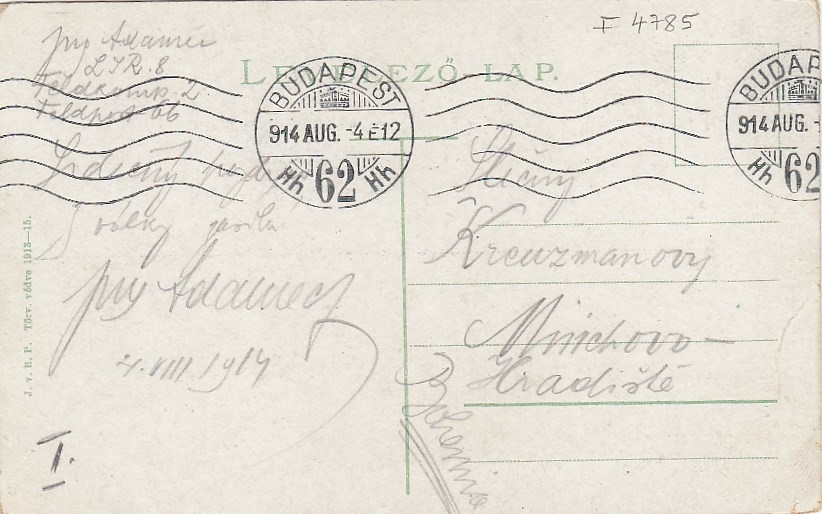 I 4785
Adamec
L.I.R. 8
Feldkomp. 2.
Feldpost 66
LEVELEZŐ-LAP.
BUDAPEST
914 AUG. -4 E 12
Hh 62 Hh
BUDAP
914 AUG. -
Hh 62
Srdečný
z války
Adamec
4. VIII 1914
I.
Slečny
Kreuzmanovy
Mnichovo-
Hradiště
Bohemia
J. v. B. P. Törv. védve 1913—15.